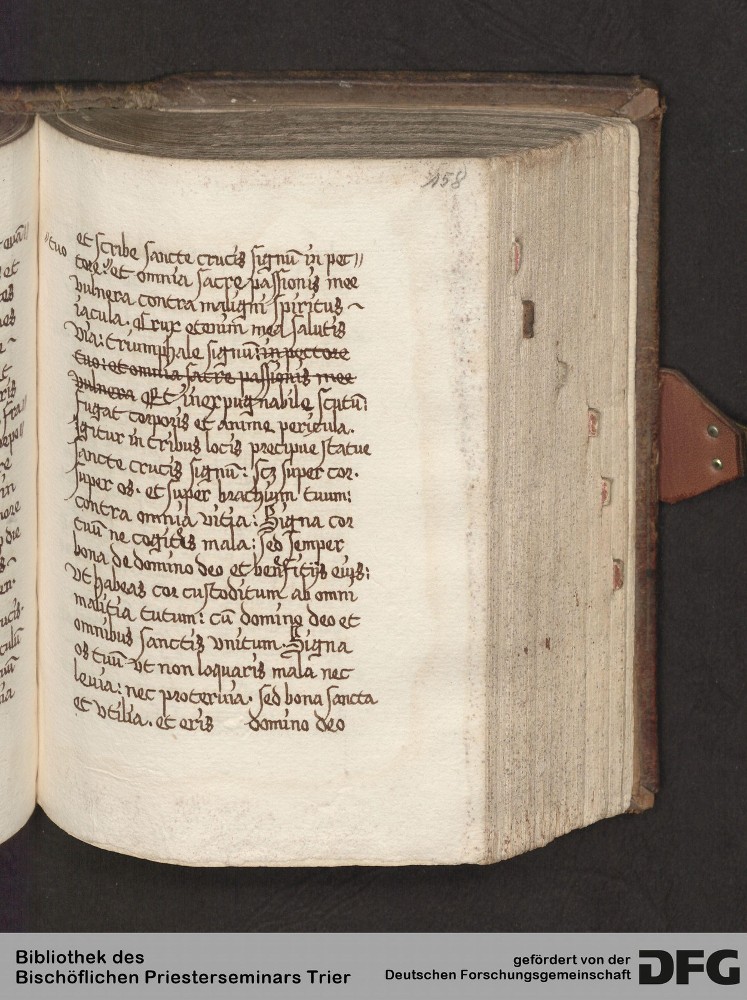 158
et scribe sancte crucis signū in pec//
"tuo
tore " et omnia sacre passionis mee
vulnera contra maligni spiritus ~
iacula. Crux etenim mea salutis
via: triumphale signū: in pectore
tuo: et omnia sacre passionis mee
vulnera Et inexpugnabile scutū:
fugat corporis et anime pericula.
Igitur in tribus locis precipue statue
sancte crucis signū: scz super cor.
super os. et super brachium tuum:
contra omnia vitia: Signa cor
tuū ne cogites mala: sed semper
bona de domino deo et benfitijs eius:
vt habeas cor custoditum ab omni
malitia tutum: cū domino deo et
omnibus sanctis vnitum. Signa
os tuū vt non loquaris mala nec
leuia: nec proterua. sed bona sancta
et vtilia. et eris domino deo
Bibliothek des
Bischöflichen Priesterseminars Trier
gefördert von der
Deutschen Forschungsgemeinschaft
DFG